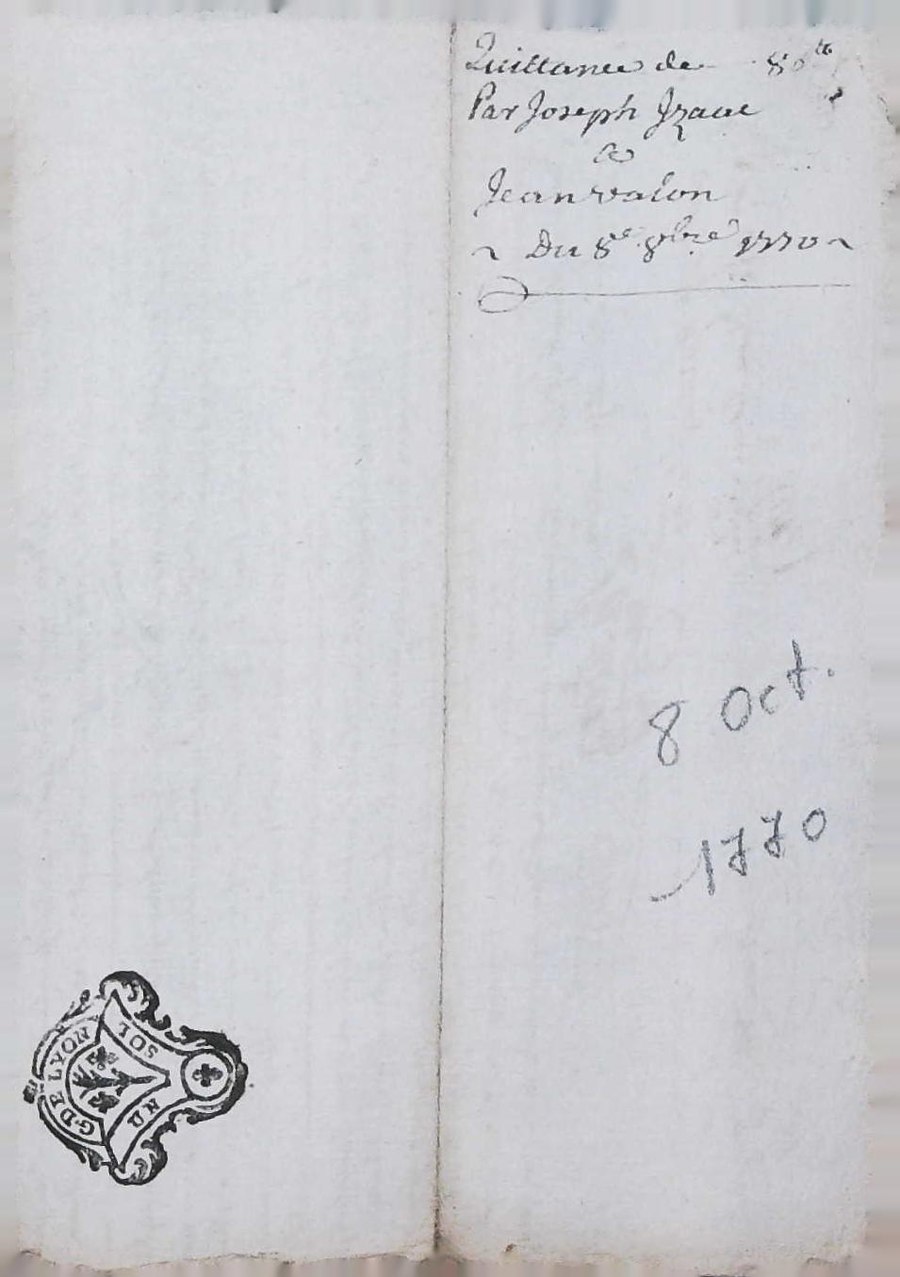 Quittance de 80 tt
Par Joseph Izaac
a
Jean valon
~ Du 8e 8bre 1770 ~
8 Oct.
1770
G. DE LYON
UN SOL